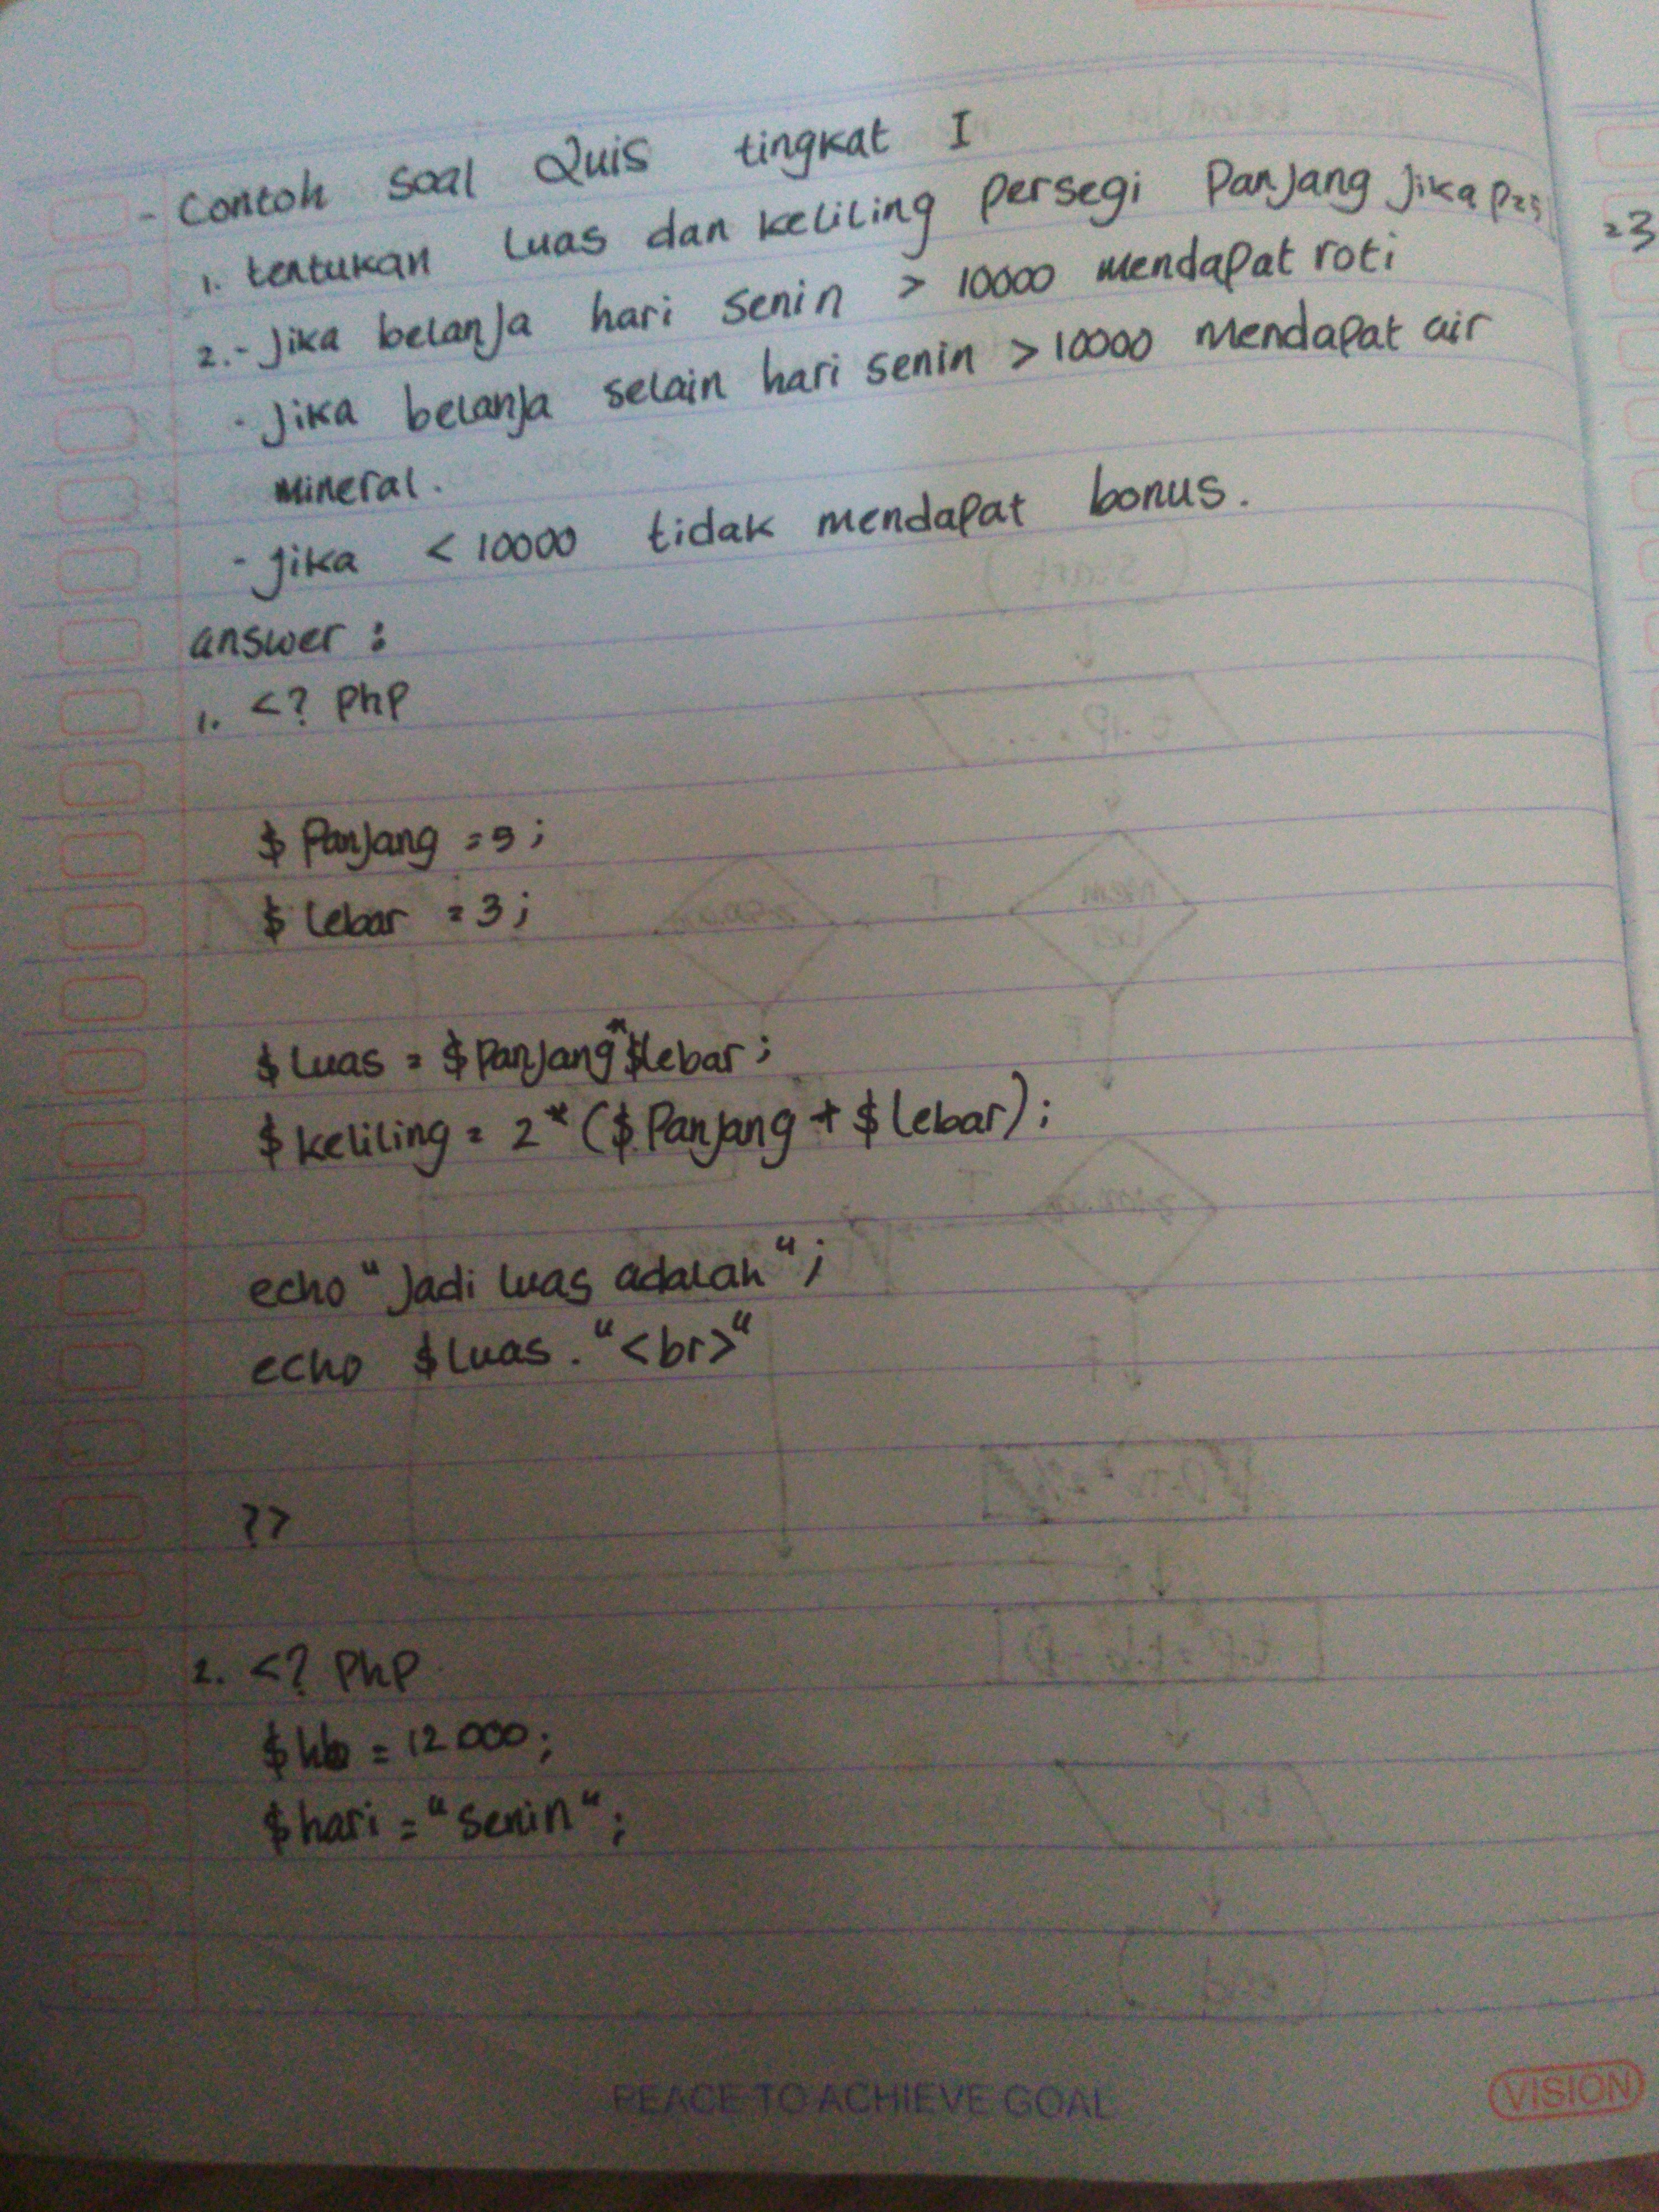 - Contoh soal Quis tingkat I
1. tentukan luas dan keliling persegi Panjang Jika P=5
=3
2.- Jika belanja hari senin > 10000 mendapat roti
- Jika belanja selain hari senin > 10000 mendapat air
mineral.
- jika < 10000 tidak mendapat bonus.
answer :
1. <? Php
$ Panjang = 5 ;
$ lebar = 3 ;
$ luas = $ Panjang * $lebar ;
$ keliling = 2 * ($ Panjang + $ lebar) ;
echo " Jadi luas adalah " ;
echo $ luas . " <br> "
?>
2. <? Php
= 12000 ;
$ hari = " senin " ;
PEACE TO ACHIEVE GOAL
VISION